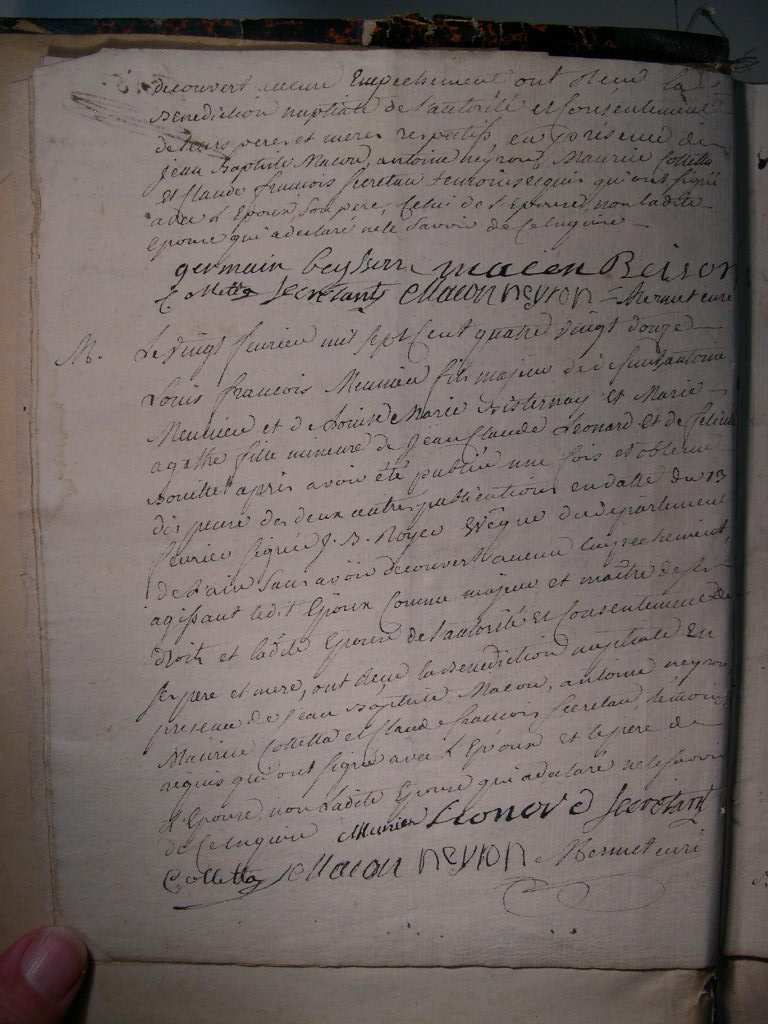 decouvert aucun Empechement ont recu la
Benediction nuptiale de l'autorité et Consentement
de leurs peres et meres respectifs, en presence de
jean Baptiste Macon, antoine neyron, Maurice Colletta
et Claude francois Secretan temoins requis qui ont signé
avec l'Epoux son pere, Celui de l'Epouse, non ladite
Epouse qui a declaré ne le savoir de Ce enquise
germain macon
Colletta Secretant Macon neyron Bermet curé
M. Le vingt fevrier mil sept Cent quatre vingt douze
Louis francois Meunier fils majeur de defunt antoine
Meunier et de Louise Marie et Marie
agathe fille mineure de jean Claude Leonard et de
Bouillet après avoir été publié une fois et obtenu
dispense des deux autres publications en datte du 13
fevrier signée J. B. Royer Evêque du departement
de l'ain sans avoir decouvert aucun Empechement,
agissant ledit Epoux Comme majeur et maître de ses
droits et ladite Epouse de l'autorité et Consentement de
ses pere et mere, ont recu la Benediction nuptiale En
presence de jean Baptiste Macon, antoine neyron
Maurice Colletta et Claude francois Secretan, temoins
requis qui ont signé avec l'Epoux et le pere de
l'Epouse, non ladite Epouse qui a declaré ne le savoir
de Ce enquise Munier Leonard Secretant
Colletta Macon neyron Bermet curé